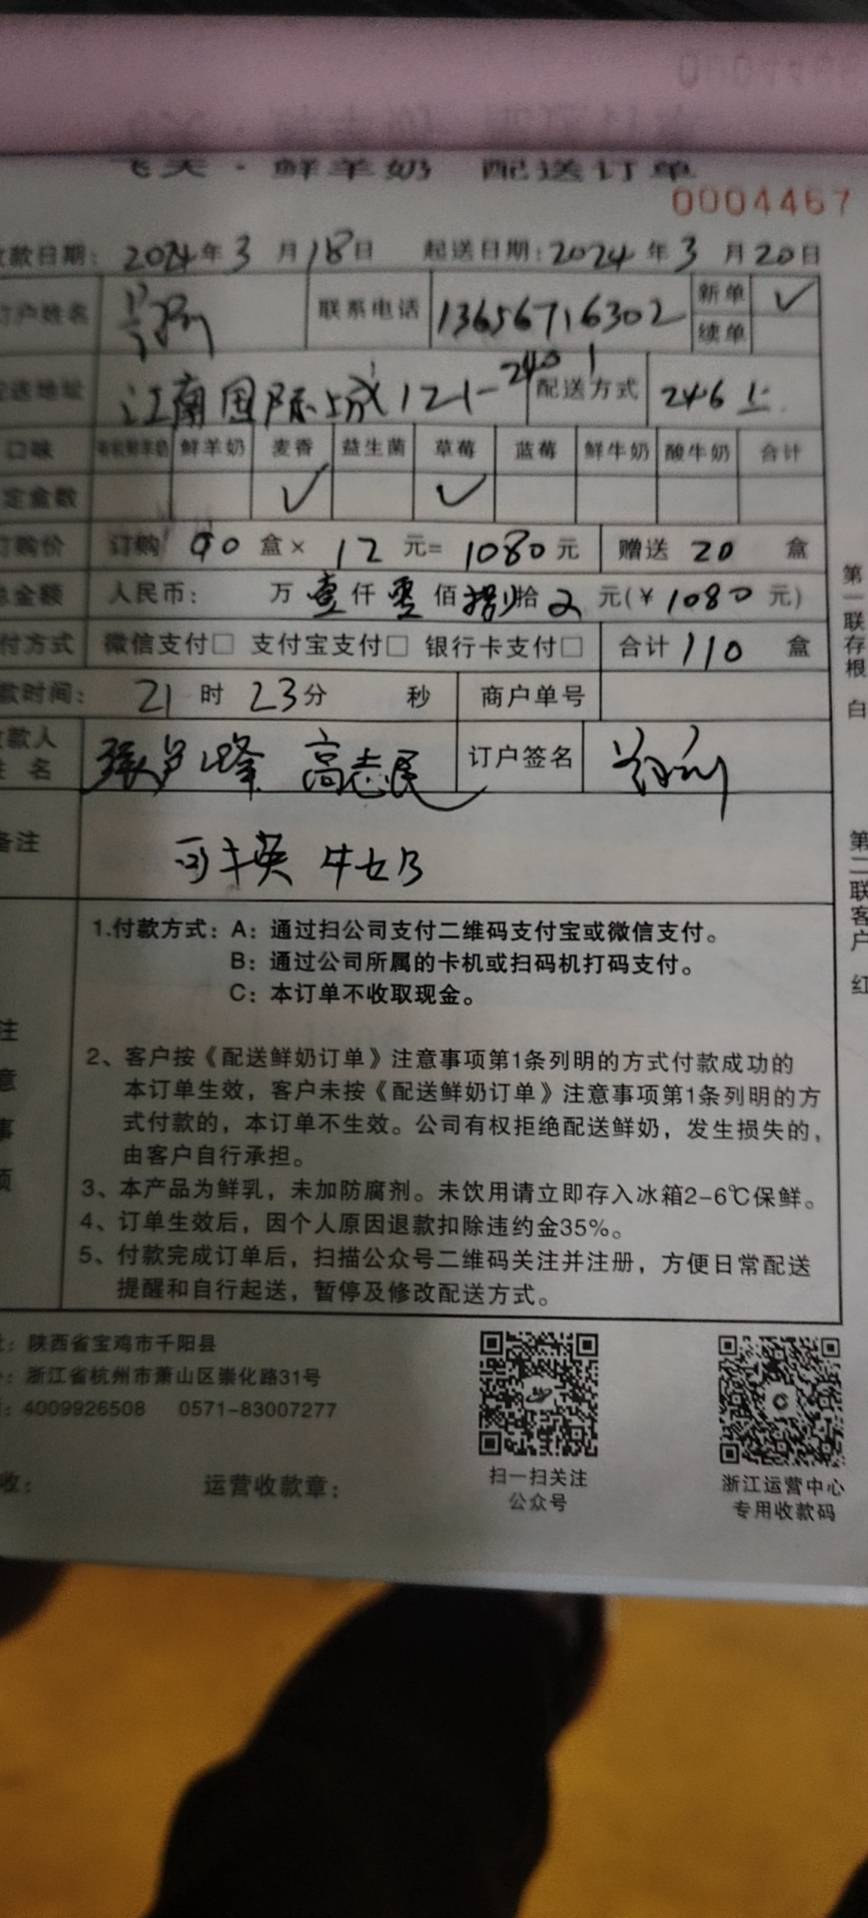 飞天·鲜羊奶 配送订单
0004467
收款日期: 2024年3月18日 起送日期: 2024年3月20日
订户姓名 联系电话 13656716302 新单 ✓
续单
配送地址 江南国际城121-2401 配送方式 246上
口味 鲜羊奶 麦香 益生菌 草莓 蓝莓 鲜牛奶 酸牛奶 合计
定盒数 ✓ ✓
订购价 订购 90 盒× 12 元= 1080元 赠送 20 盒
总金额 人民币: 万壹仟零佰捌拾 元(¥1080元)
付方式 微信支付□ 支付宝支付□ 银行卡支付□ 合计110 盒
款时间: 21时23分 秒 商户单号
收款人姓名 高志民 订户签名
备注 可换牛奶
注意事项
1.付款方式: A: 通过扫公司支付二维码支付宝或微信支付。
B: 通过公司所属的卡机或扫码机打码支付。
C: 本订单不收取现金。
2、客户按《配送鲜奶订单》注意事项第1条列明的方式付款成功的
本订单生效，客户未按《配送鲜奶订单》注意事项第1条列明的方
式付款的，本订单不生效。公司有权拒绝配送鲜奶，发生损失的，
由客户自行承担。
3、本产品为鲜乳，未加防腐剂。未饮用请立即存入冰箱2-6℃保鲜。
4、订单生效后，因个人原因退款扣除违约金35%。
5、付款完成订单后，扫描公众号二维码关注并注册，方便日常配送
提醒和自行起送，暂停及修改配送方式。
第一联存根 白
第二联客户 红
: 陕西省宝鸡市千阳县
: 浙江省杭州市萧山区崇化路31号
: 4009926508 0571-83007277
收: 运营收款章:
扫一扫关注
公众号
浙江运营中心
专用收款码